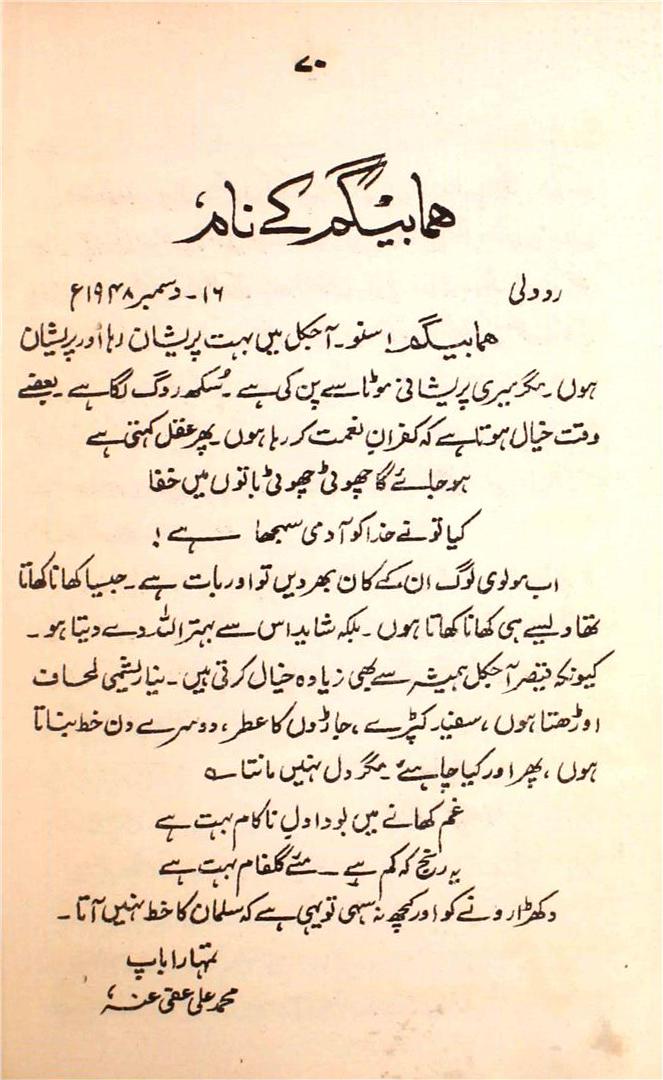 ۷۰
ہما بیگم کے نام
ردولی ۱۶۔ دسمبر ۱۹۴۸ء
ہما بیگم! سنو۔ آجکل میں بہت پریشان رہا اور پریشان
ہوں۔ مگر میری پریشانی موٹاپے پن کی ہے۔ سُکھ روگ لگا ہے۔ بعضے
وقت خیال ہوتا ہے کہ کفرانِ نعمت کر رہا ہوں۔ پھر عقل کہتی ہے
ہو جائے گا چھوٹی چھوٹی باتوں میں خفا
کیا تو نے خدا کو آدمی سمجھا ہے!
اب مولوی لوگ ان کے کان بھر دیں تو اور بات ہے۔ جیسا کھانا کھاتا
تھا ویسے ہی کھانا کھاتا ہوں۔ بلکہ شاید اس سے بہتر اللہ دے دیتا ہو۔
کیونکہ قیصر آجکل ہمیشہ سے بھی زیادہ خیال کرتی ہیں۔ نیا ریشمی لحاف
اوڑھتا ہوں، سفید کپڑے، جاڑوں کا عطر، دوسرے دن خط بناتا
ہوں، پھر اور کیا چاہیئے۔ مگر دل نہیں مانتا ؎
غم کھانے میں بودا دلِ ناکام بہت ہے
یہ رنج کہ کم ہے ۔ مئے گلفام بہت ہے
دکھڑا رونے کو اور کچھ نہ سہی تو یہی ہے کہ سلمان کا خط نہیں آتا۔
تمہارا باپ
محمد علی عفی عنہ